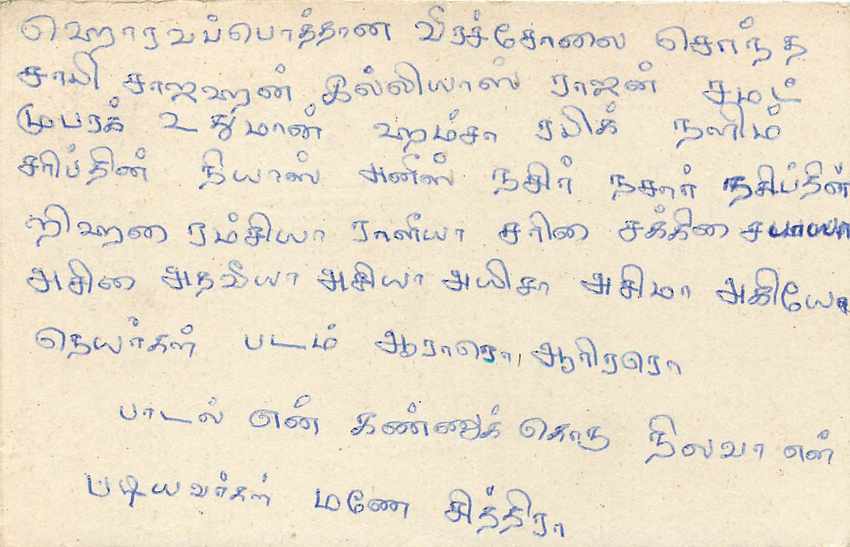 ஹொரவப்பொத்தான வீரச்சோலை சொந்த
சாபி சாஜஹான் இல்லியாஸ் ராஜன் சமட்
முபரக் உதுமான் ஹம்சா ரபிக் நளிம்
சரிப்தின் நியாஸ் அனீஸ் நசிர் நசார் நசிப்தின்
றிஹானை ரம்சியா ராலியா சரினை சக்கினை
அசினை அதவியா அசியா அயிசா அசிமா அகியோ
நெயர்கள் படம் ஆராரொ ஆரிரரொ
பாடல் என் கண்ணுக் கொரு நிலவா என்
படியவர்கள் மனோ சித்திரா